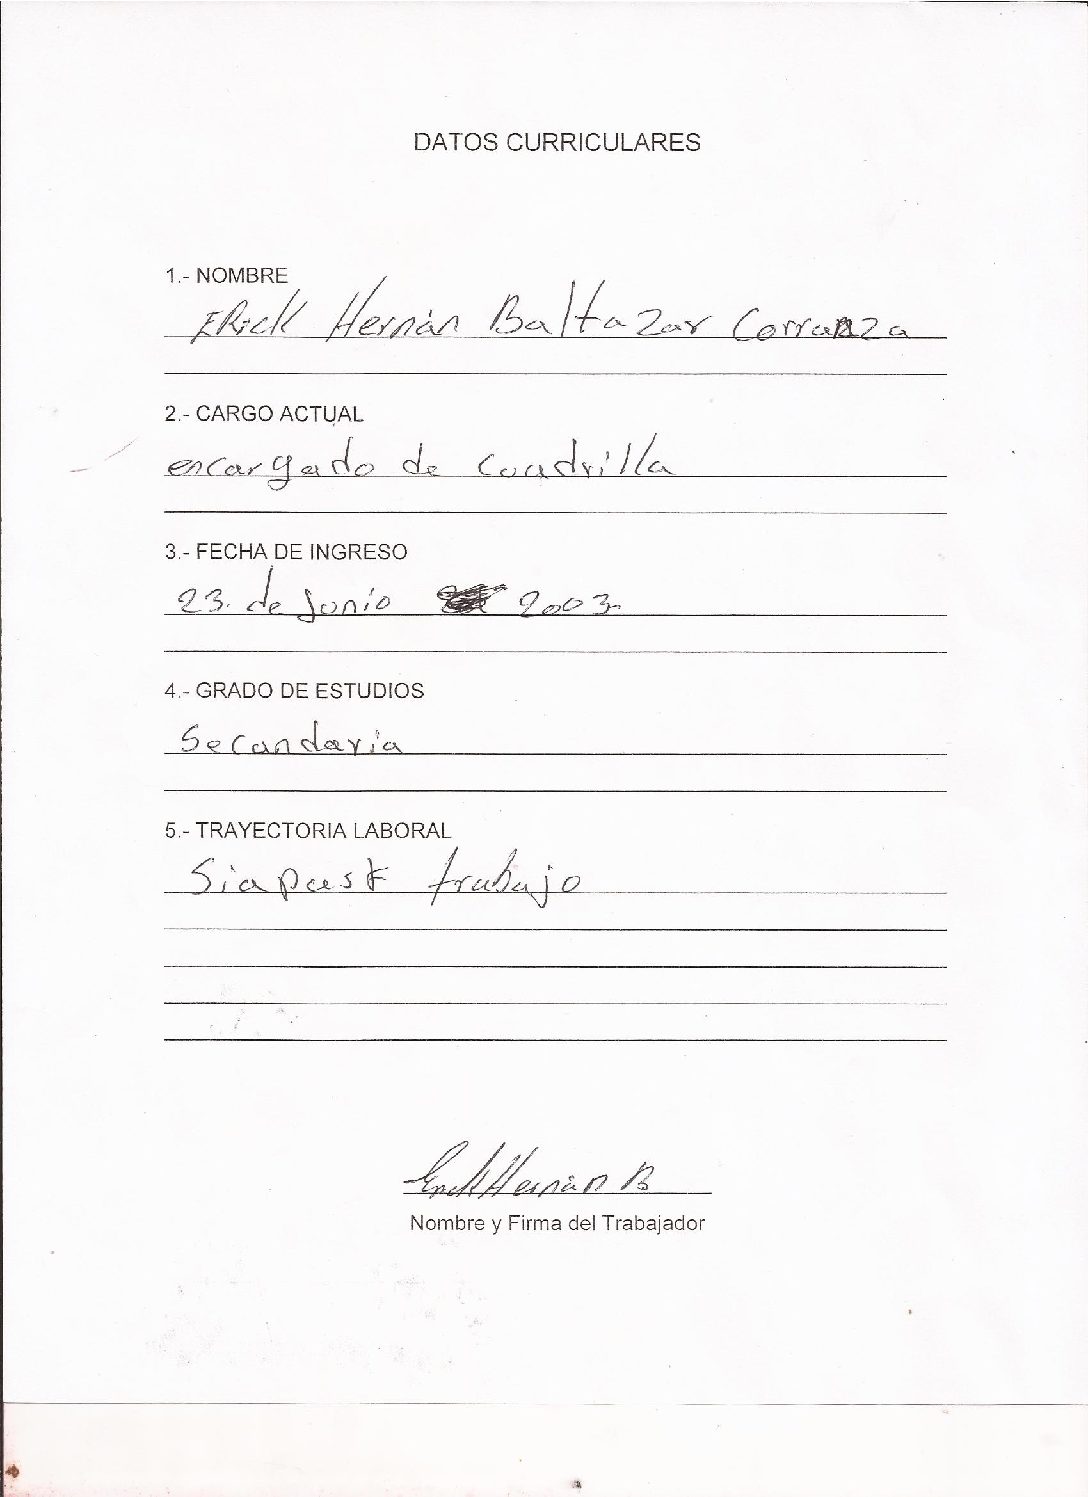 DATOS CURRICULARES
1.- NOMBRE
ERick Hernán Baltazar Corranza
2.- CARGO ACTUAL
encargado de Cuadrilla
3.- FECHA DE INGRESO
23. de Junio 2003
4.- GRADO DE ESTUDIOS
Secandaria
5.- TRAYECTORIA LABORAL
Siapast trabajo
Erick Hernán B
Nombre y Firma del Trabajador